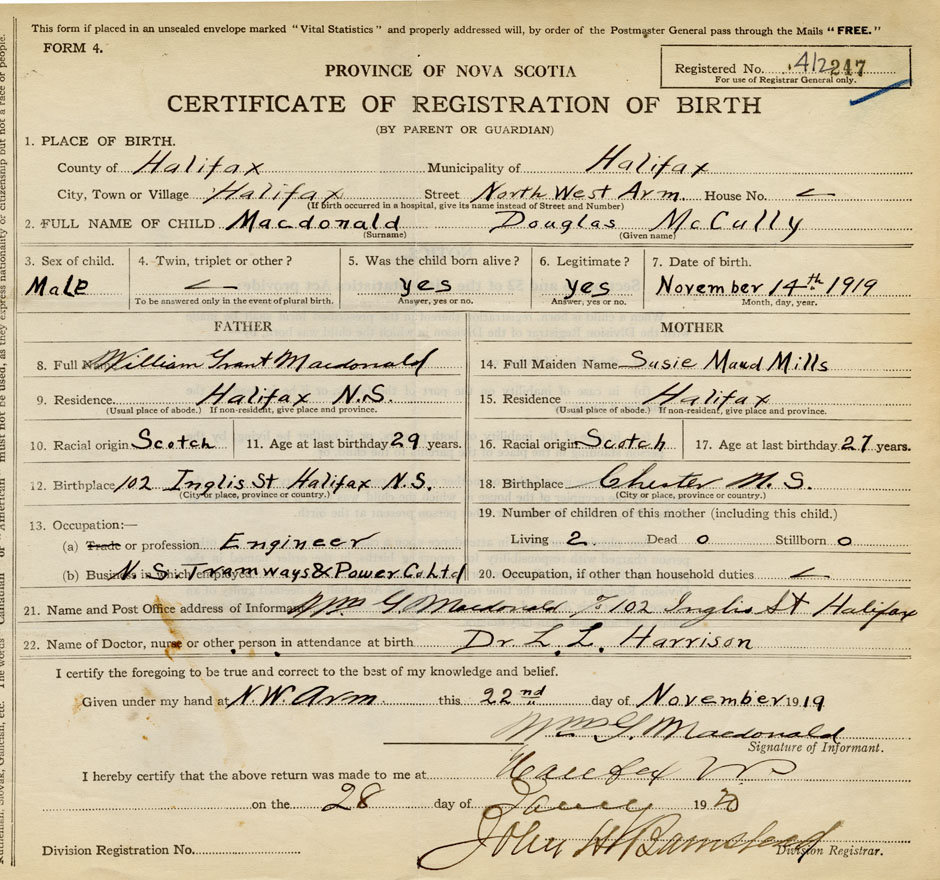 This form if placed in an unsealed envelope marked "Vital Statistics" and properly addressed will, by order of the Postmaster General pass through the Mails "FREE."
FORM 4.
PROVINCE OF NOVA SCOTIA
Registered No. 217
For use of Registrar General only.
CERTIFICATE OF REGISTRATION OF BIRTH
(BY PARENT OR GUARDIAN)
1. PLACE OF BIRTH.
County of Halifax Municipality of Halifax
City, Town or Village Halifax Street North West Arm House No. —
(If birth occurred in a hospital, give its name instead of Street and Number)
2. FULL NAME OF CHILD Macdonald Douglas McCully
(Surname) (Given name)
3. Sex of child. 4. Twin, triplet or other? 5. Was the child born alive? 6. Legitimate? 7. Date of birth.
Male — yes yes November 14th 1919
To be answered only in the event of plural birth. Answer, yes or no. Answer, yes or no. Month, day, year.
FATHER MOTHER
8. Full Name William Grant Macdonald 14. Full Maiden Name Susie Maud Mills
9. Residence. Halifax N.S. 15. Residence Halifax
(Usual place of abode.) If non-resident, give place and province. (Usual place of abode.) If non-resident, give place and province.
10. Racial origin Scotch 11. Age at last birthday 29 years. 16. Racial origin Scotch 17. Age at last birthday 27 years.
12. Birthplace 102 Inglis St Halifax N.S. 18. Birthplace Chester N.S.
(City or place, province or country.) (City or place, province or country.)
13. Occupation:— 19. Number of children of this mother (including this child.)
(a) Trade or profession Engineer Living 2 Dead 0 Stillborn 0
(b) Business in which employed N.S. Tramways & Power Co. Ltd 20. Occupation, if other than household duties —
21. Name and Post Office address of Informant Wm G. Macdonald % 102 Inglis St Halifax
22. Name of Doctor, nurse or other person in attendance at birth Dr. L. L. Harrison
I certify the foregoing to be true and correct to the best of my knowledge and belief.
Given under my hand at N.W. Arm this 22nd day of November 1919
Wm G. Macdonald
Signature of Informant.
I hereby certify that the above return was made to me at Halifax NS
on the 28 day of Jany 1920
John H Barnstead
Division Registration No. Division Registrar.